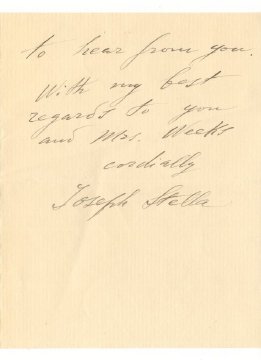 to hear from you.
With my best
regards to you
and Mrs. Weeks
cordially
Joseph Stella